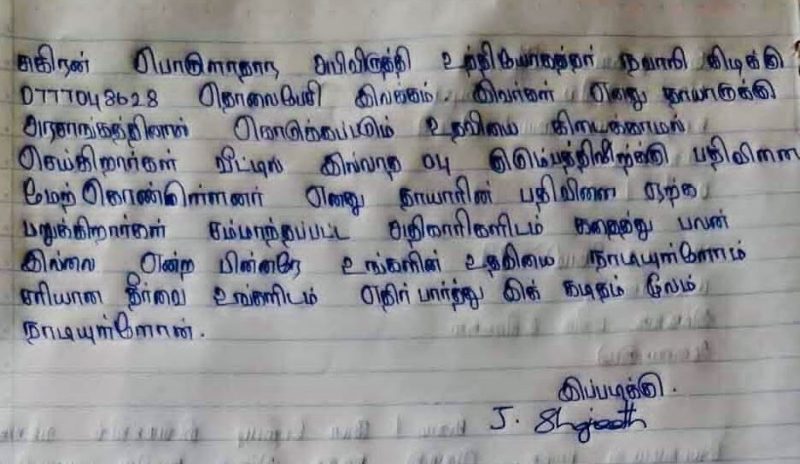 சுகிரன் பொருளாதார அபிவிருத்தி உத்தியோகத்தர் நவாலி கிழக்கு
0777048628 தொலைபேசி இலக்கம். இவர்கள் எனது தாயாருக்கு
அரசாங்கத்தினால் கொடுக்கப்படும் உதவியை கிடைக்காமல்
செய்கிறார்கள் வீட்டில் இல்லாத 04 குடும்பத்திற்கு பதிவினை
மேற்கொண்டுள்ளனர் எனது தாயாரின் பதிவினை ஏற்க
மறுக்கிறார்கள் சம்மந்தப்பட்ட அதிகாரிகளிடம் கதைத்து பலன்
இல்லை என்ற பின்னரே உங்களின் உதவியை நாடியுள்ளோம்
சரியான தீர்வை உங்களிடம் எதிர் பார்த்து இக் கடிதம் மூலம்
நாடியுள்ளேன்.
இப்படிக்கு.
J.